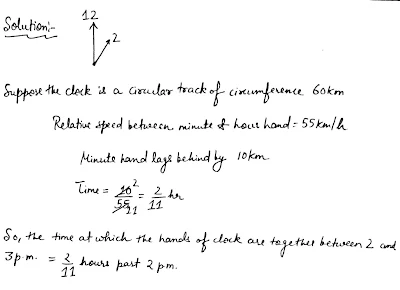 Solution:-
12
2
Suppose the clock is a circular track of circumference 60km
Relative speed between minute & hour hand = 55km/h
Minute hand lags behind by 10km
Time = 10/55 = 2/11 hr
2
11
So, the time at which the hands of clock are together between 2 and
3 p.m. = 2/11 hours past 2 pm.